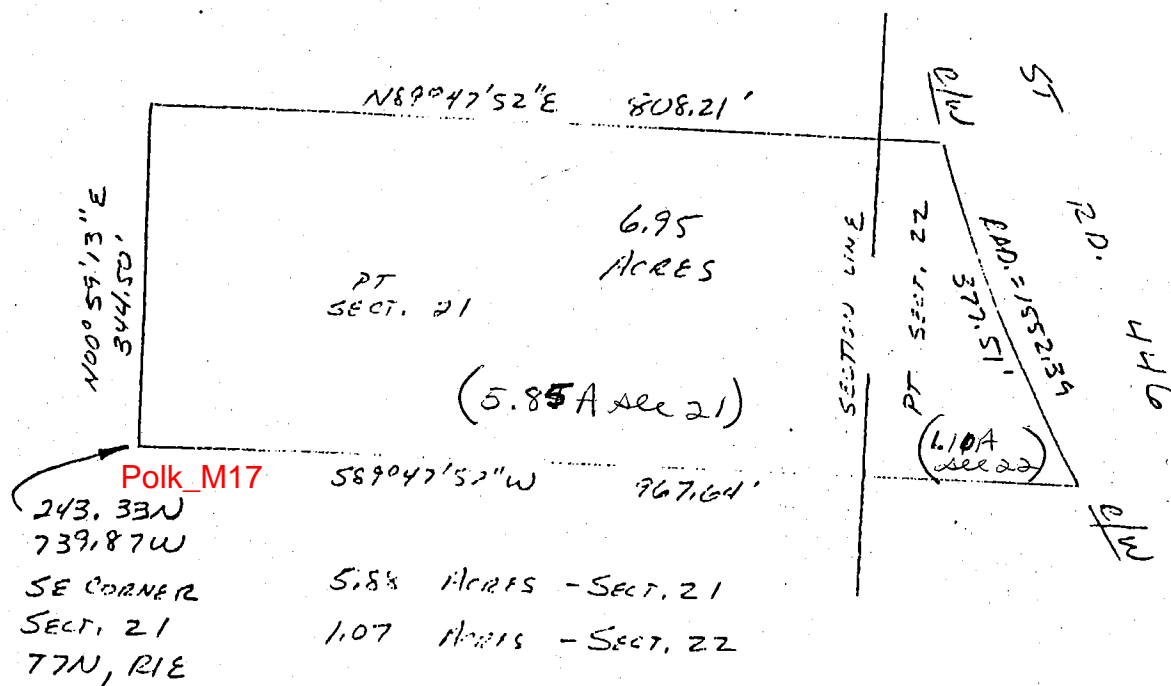 N89°47'52"E 808.21'
R/W
ST
RD.
446
N00°59'13"E
344.50'
6.95
ACRES
PT
SECT. 21
(5.85 A sec 21)
SECTION LINE
PT SECT. 22
RAD.=1552.39
377.51'
(1.10A
sec 22)
Polk_M17
S89°47'52"W 967.64'
R/W
243.33N
739.87W
SE CORNER
SECT. 21
T7N, R1E
5.88 ACRES - SECT. 21
1.07 ACRES - SECT. 22